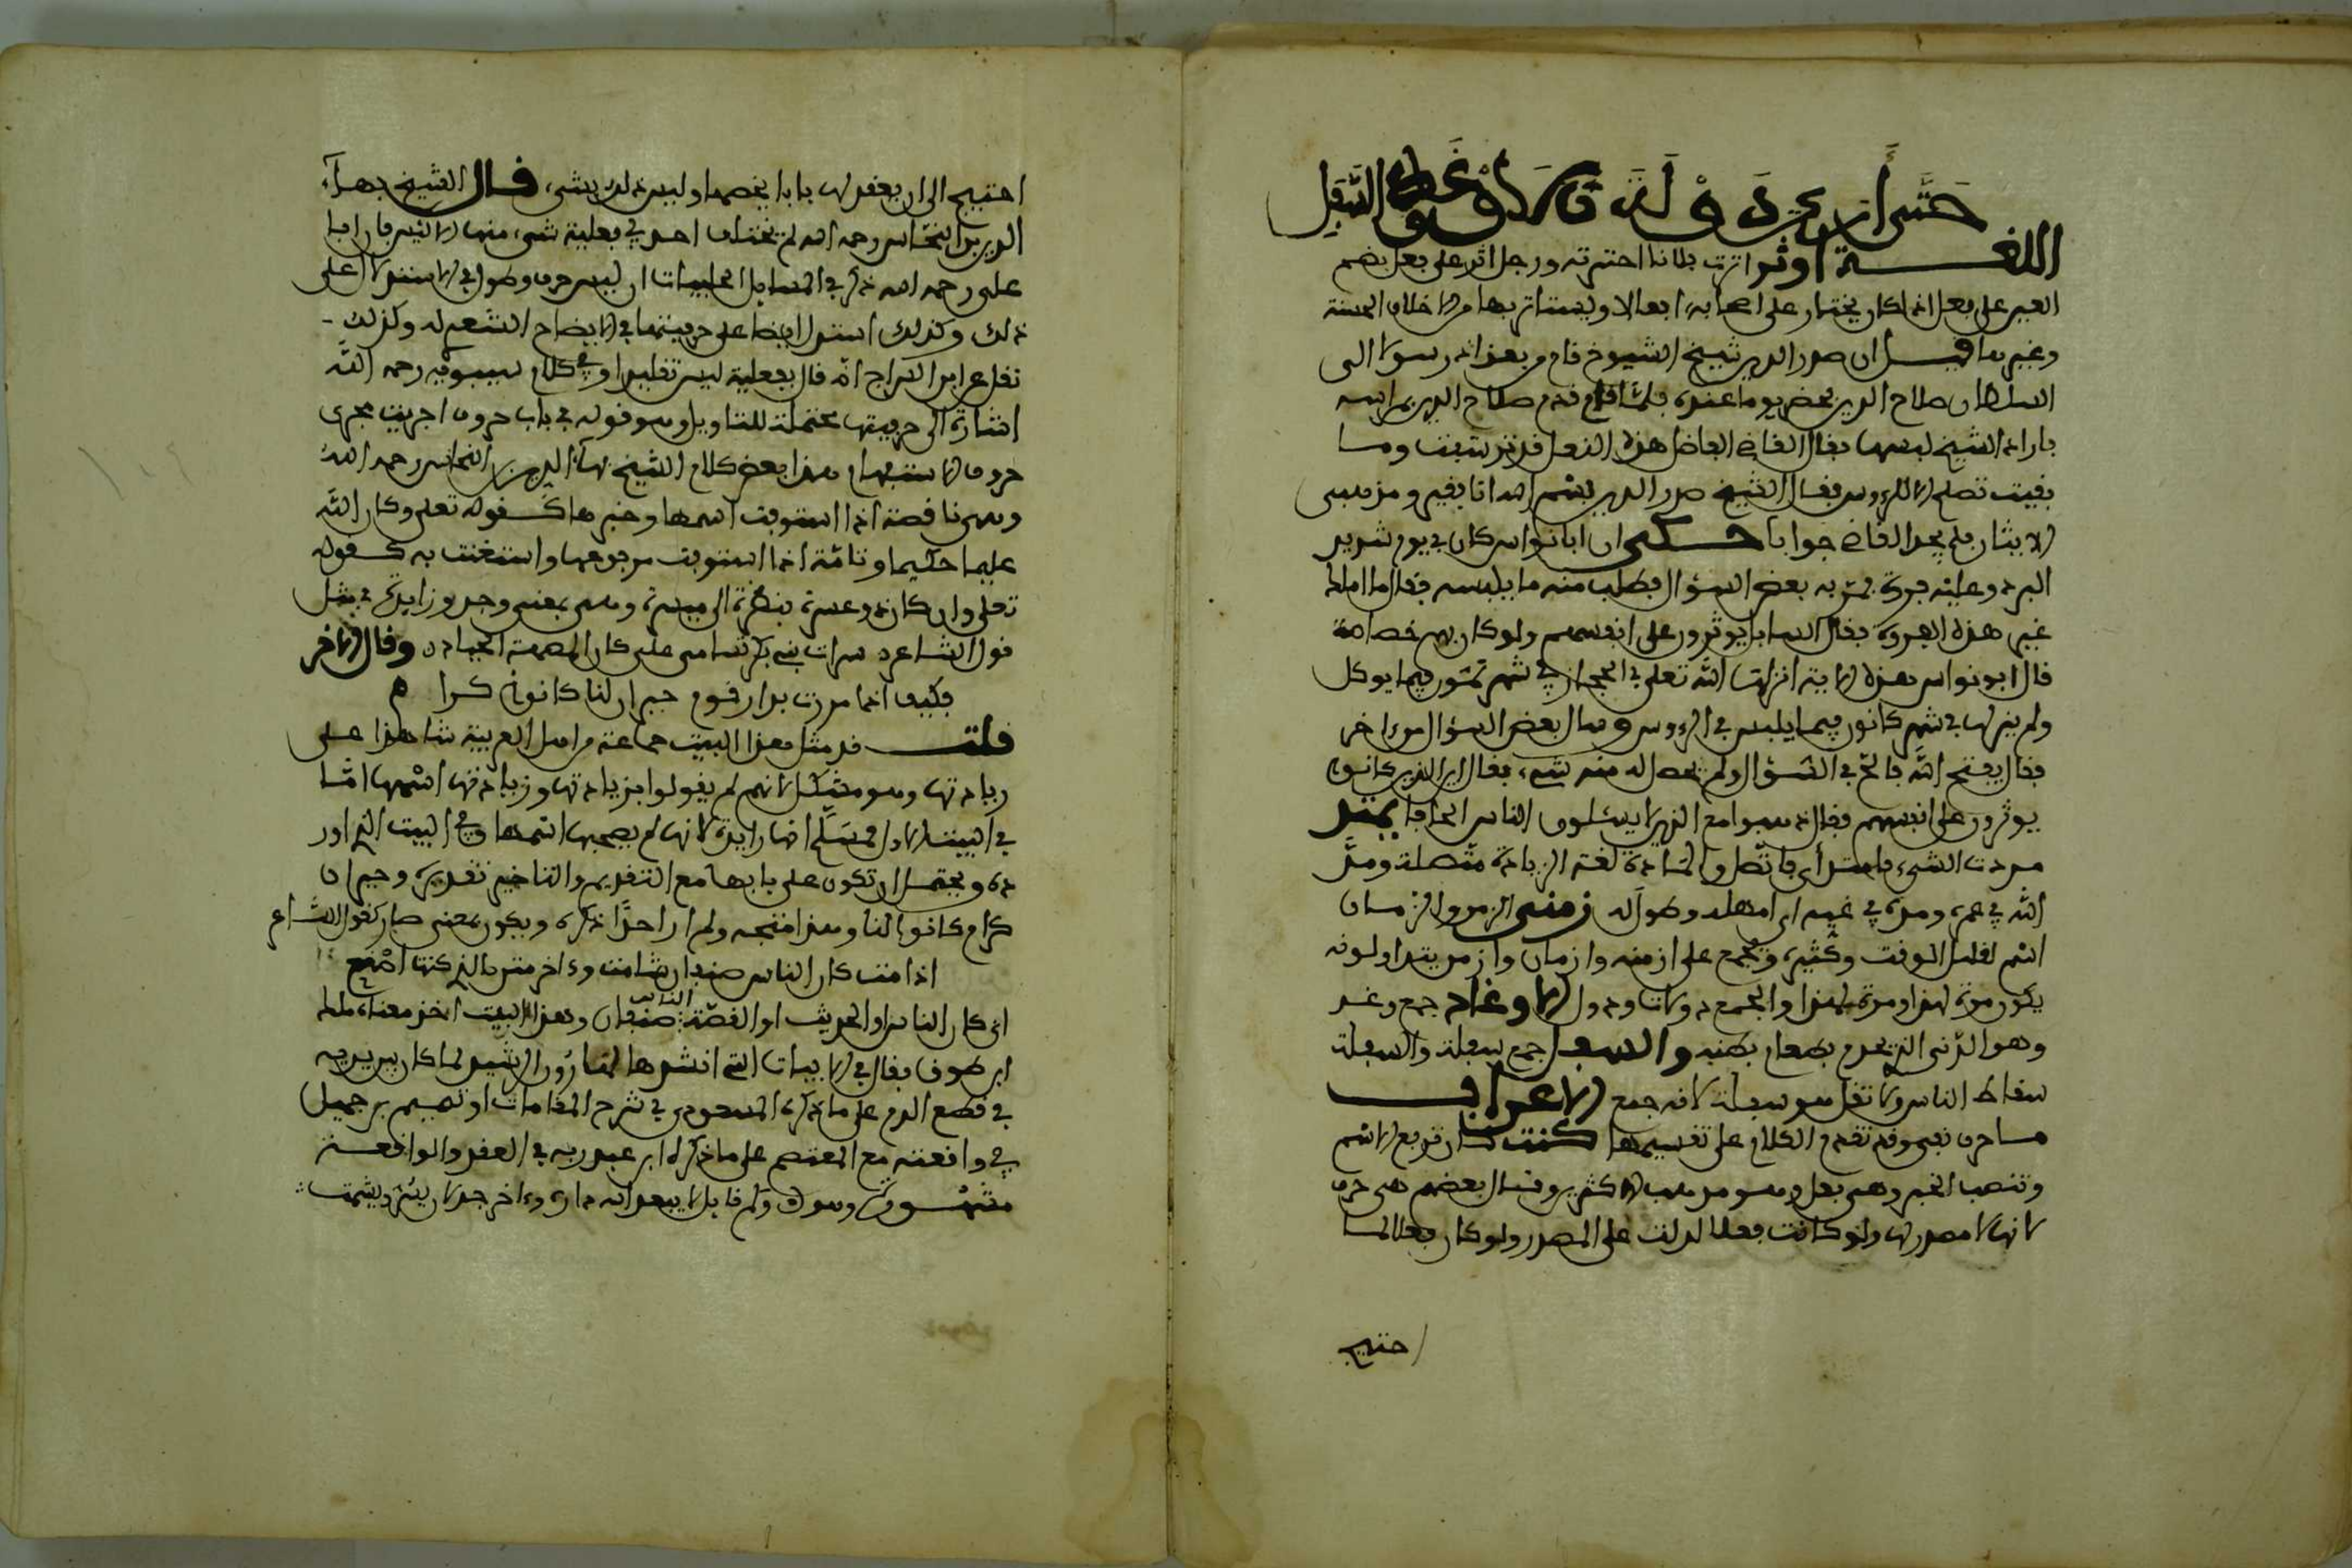 حَتَّى أَرَى دَوْلَةَ الاوْغَادِ والسَّفَلِ
اللغـــة اوثر اثرت فلانا اخترته ورجل اثر على فعل بضم
العين على فعل اذا كان يختار على اصحابه افعالا ويستاثر بها من الاخلاق الحسنة
وغيرها قيل ان صدر الدين شيخ الشيوخ قدم من بغداد رسولا الى
السلطان صلاح الدين فحضر يوما عنده فلما قام قدم صلاح الدين مداسه
فاراد الشيخ لبسها فقال القاضي الفاضل هذه النعل قد تربت وما
بقيت تصلح الا للروس فقال الشيخ صدر الدين بسم الله انا فقير ومذهبي
الايثار فلم يجد القاضي جوابا حـكي ان ابا نواس كان في يوم شديد
البرد وعليه فروة فمر به بعض السؤال فطلب منه ما يلبسه فقال ما املك
غير هذه الفروة فقال السايل ويوثرون على انفسهم ولو كان بهم خصاصة
قال ابو نواس هذه الاية انزلها الله تعلى في الحجاز في شهر تموز فيما يوكل
ولم ينزلها في شهر كانون فيما يلبس في الروس وسال بعض السؤال من اخر
فقال يفتح الله فالح في السؤال ولم يحصل له منه شيء فقال اين الذين كانوا
يوثرون على انفسهم فقال ذهبوا مع الذين لا يسئلون الناس الحافا يمتد
مددت الشيء فامتد أي فاتصل والمادة لغة الزيادة متصلة ومد
الله في عمره ومده في غيه اي امهله وطول له زمني الزمن والزمان
اسم لقليل الوقت وكثيره ويجمع على ازمنه وازمان وازمن يتداولونه
يكون مرة لهذا ومرة لهذا والجمع دولات ودول الاوغاد جمع وغد
وهو الدني الذي يخدم بطعام بطنه والسفل جمع سفلة والسفلة
سقاط الناس ولا تقل هو سفلة لانه جمع الاعراب
ما حرف نفي وقد تقدم الكلام على تقسيمها كنت كان ترفع الاسم
وتنصب الخبر وهي فعل وهو مذهب الاكثرين وقال بعضهم هي حرف
لانها لا مصدر لها ولو كانت فعلا لدلت على المصدر ولو كان فعلا لما
احتيج
احتيج الى ان يعقد لها بابا يخصها وليس ذلك بشيء قـال الشيخ بهاء
الدين بن النحاس رحمه الله لم يختلف احد في فعلية شيء منها الا ليس فان ابا
علي رحمه الله ذكر في المسايل الحلبيات ان ليس حرف وطول في الاستدلال على
ذلك وكذلك استدل ايضا على حرفيتها في الايضاح الشعر له وكذلك
نقل عن ابن السراج انه قال بفعلية ليس تقليدا وفي كلام سيبويه رحمه الله
اشارة الى حرفيتها محتملة للتاويل وهو قوله في باب حروف اجريت مجرى
حروف الاستفهام هذا بعض كلام الشيخ بهاء الدين بن النحاس رحمه الله
وهي ناقصة اذا استوفت اسمها وخبرها كـقوله تعلى وكان الله
عليما حكيما وتامة اذا استوفت مرفوعها واستغنت به كـقوله
تعلى وان كان ذو عسرة فنظرة الى ميسرة وهي بمعنى وجد وزايدة في مثل
قول الشاعر سراة بني بكر تسامى على كان المسومة الجياد وقال الاخر
فكيف اذا مررت بدار قوم جيران لنا كانوا كرام
قلت قد مثل بهذا البيت جماعة من اهل العربية شاهدا على
زيادتها وهو مشكل لانهم لم يقولوا بزيادتها وزيادة اسمها اما
في البيت الاول فمسلم انها زايدة لانها لم يصحبها اسمها وفي البيت الذي اور
ده يحتمل ان تكون على بابها مع التقديم والتاخير تقديره وجيران
كرام كانوا لنا وهذا متجه ولم ار احدا ذكره ويكون بمعنى صار كقول الشاعر
اذا مت كان الناس صنفان شامت واخر مثن بالذي كنت اصنع
اي كان الناس او الحديث او القصة الناس صنفان وهذا البيت اخذ معناه
ابن طوق فقال في الابيات التي انشدها لهارون الرشيد لما كان بين يديه
في قطع الدم على ما ذكره المسعودي في شرح المقامات او تميم بن جميل
في واقعته مع المعتصم على ما ذكره ابن عبد ربه في العقد والواقعـة
مشهـورة وكم قايل لا يبعد الله داره واخر جذلان يسر ويشمت